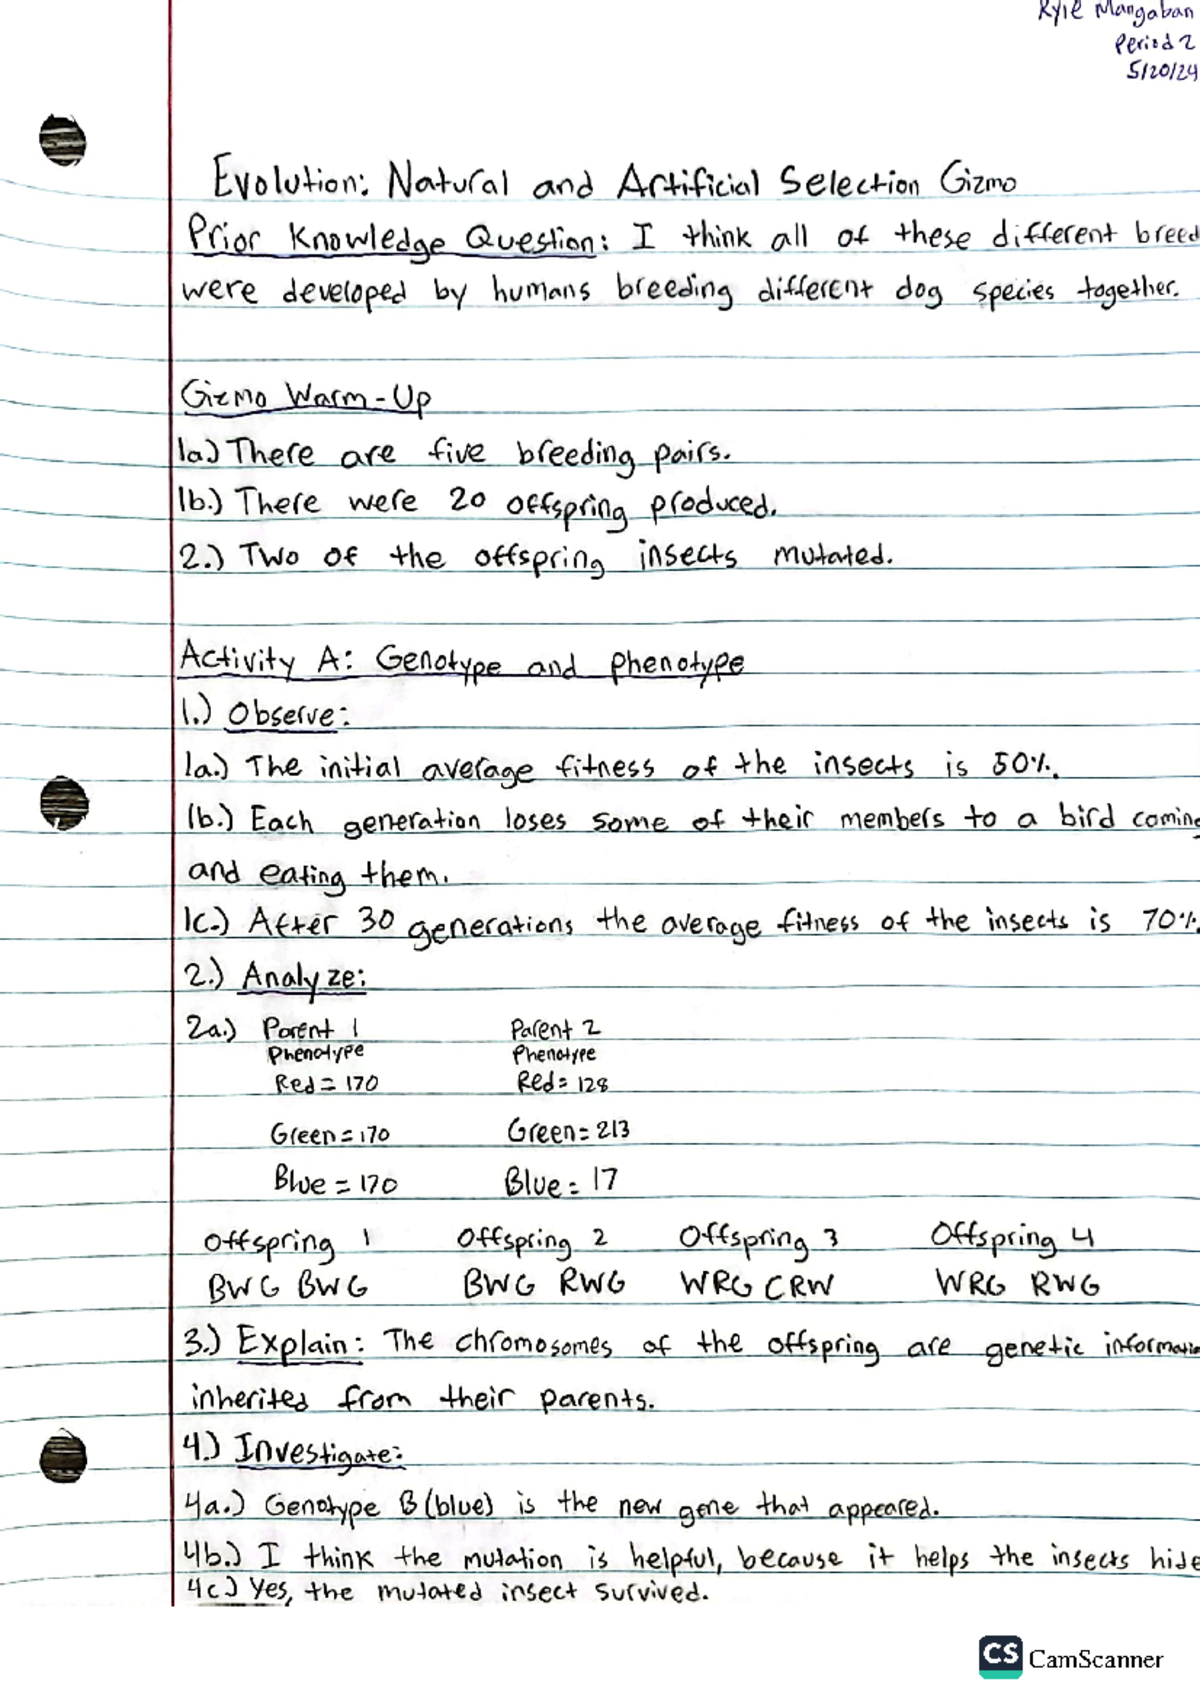 Kyle Mangaban
Period 2
5/20/24
Evolution: Natural and Artificial Selection Gizmo
Prior Knowledge Question: I think all of these different breed
were developed by humans breeding different dog species together.
Gizmo Warm-Up
1a.) There are five breeding pairs.
1b.) There were 20 offspring produced.
2.) Two of the offspring insects mutated.
Activity A: Genotype and phenotype
1.) Observe:
1a.) The initial average fitness of the insects is 50%.
1b.) Each generation loses some of their members to a bird coming
and eating them.
1c.) After 30 generations the average fitness of the insects is 70%.
2.) Analyze:
2a.) Parent 1 Parent 2
Phenotype Phenotype
Red = 170 Red = 128
Green = 170 Green = 213
Blue = 170 Blue = 17
Offspring 1 Offspring 2 Offspring 3 Offspring 4
BWG BWG BWG RWG WRG CRW WRG RWG
3.) Explain: The chromosomes of the offspring are genetic informatio
inherited from their parents.
4.) Investigate:
4a.) Genotype B (blue) is the new gene that appeared.
4b.) I think the mutation is helpful, because it helps the insects hide
4c.) Yes, the mutated insect survived.
CS CamScanner